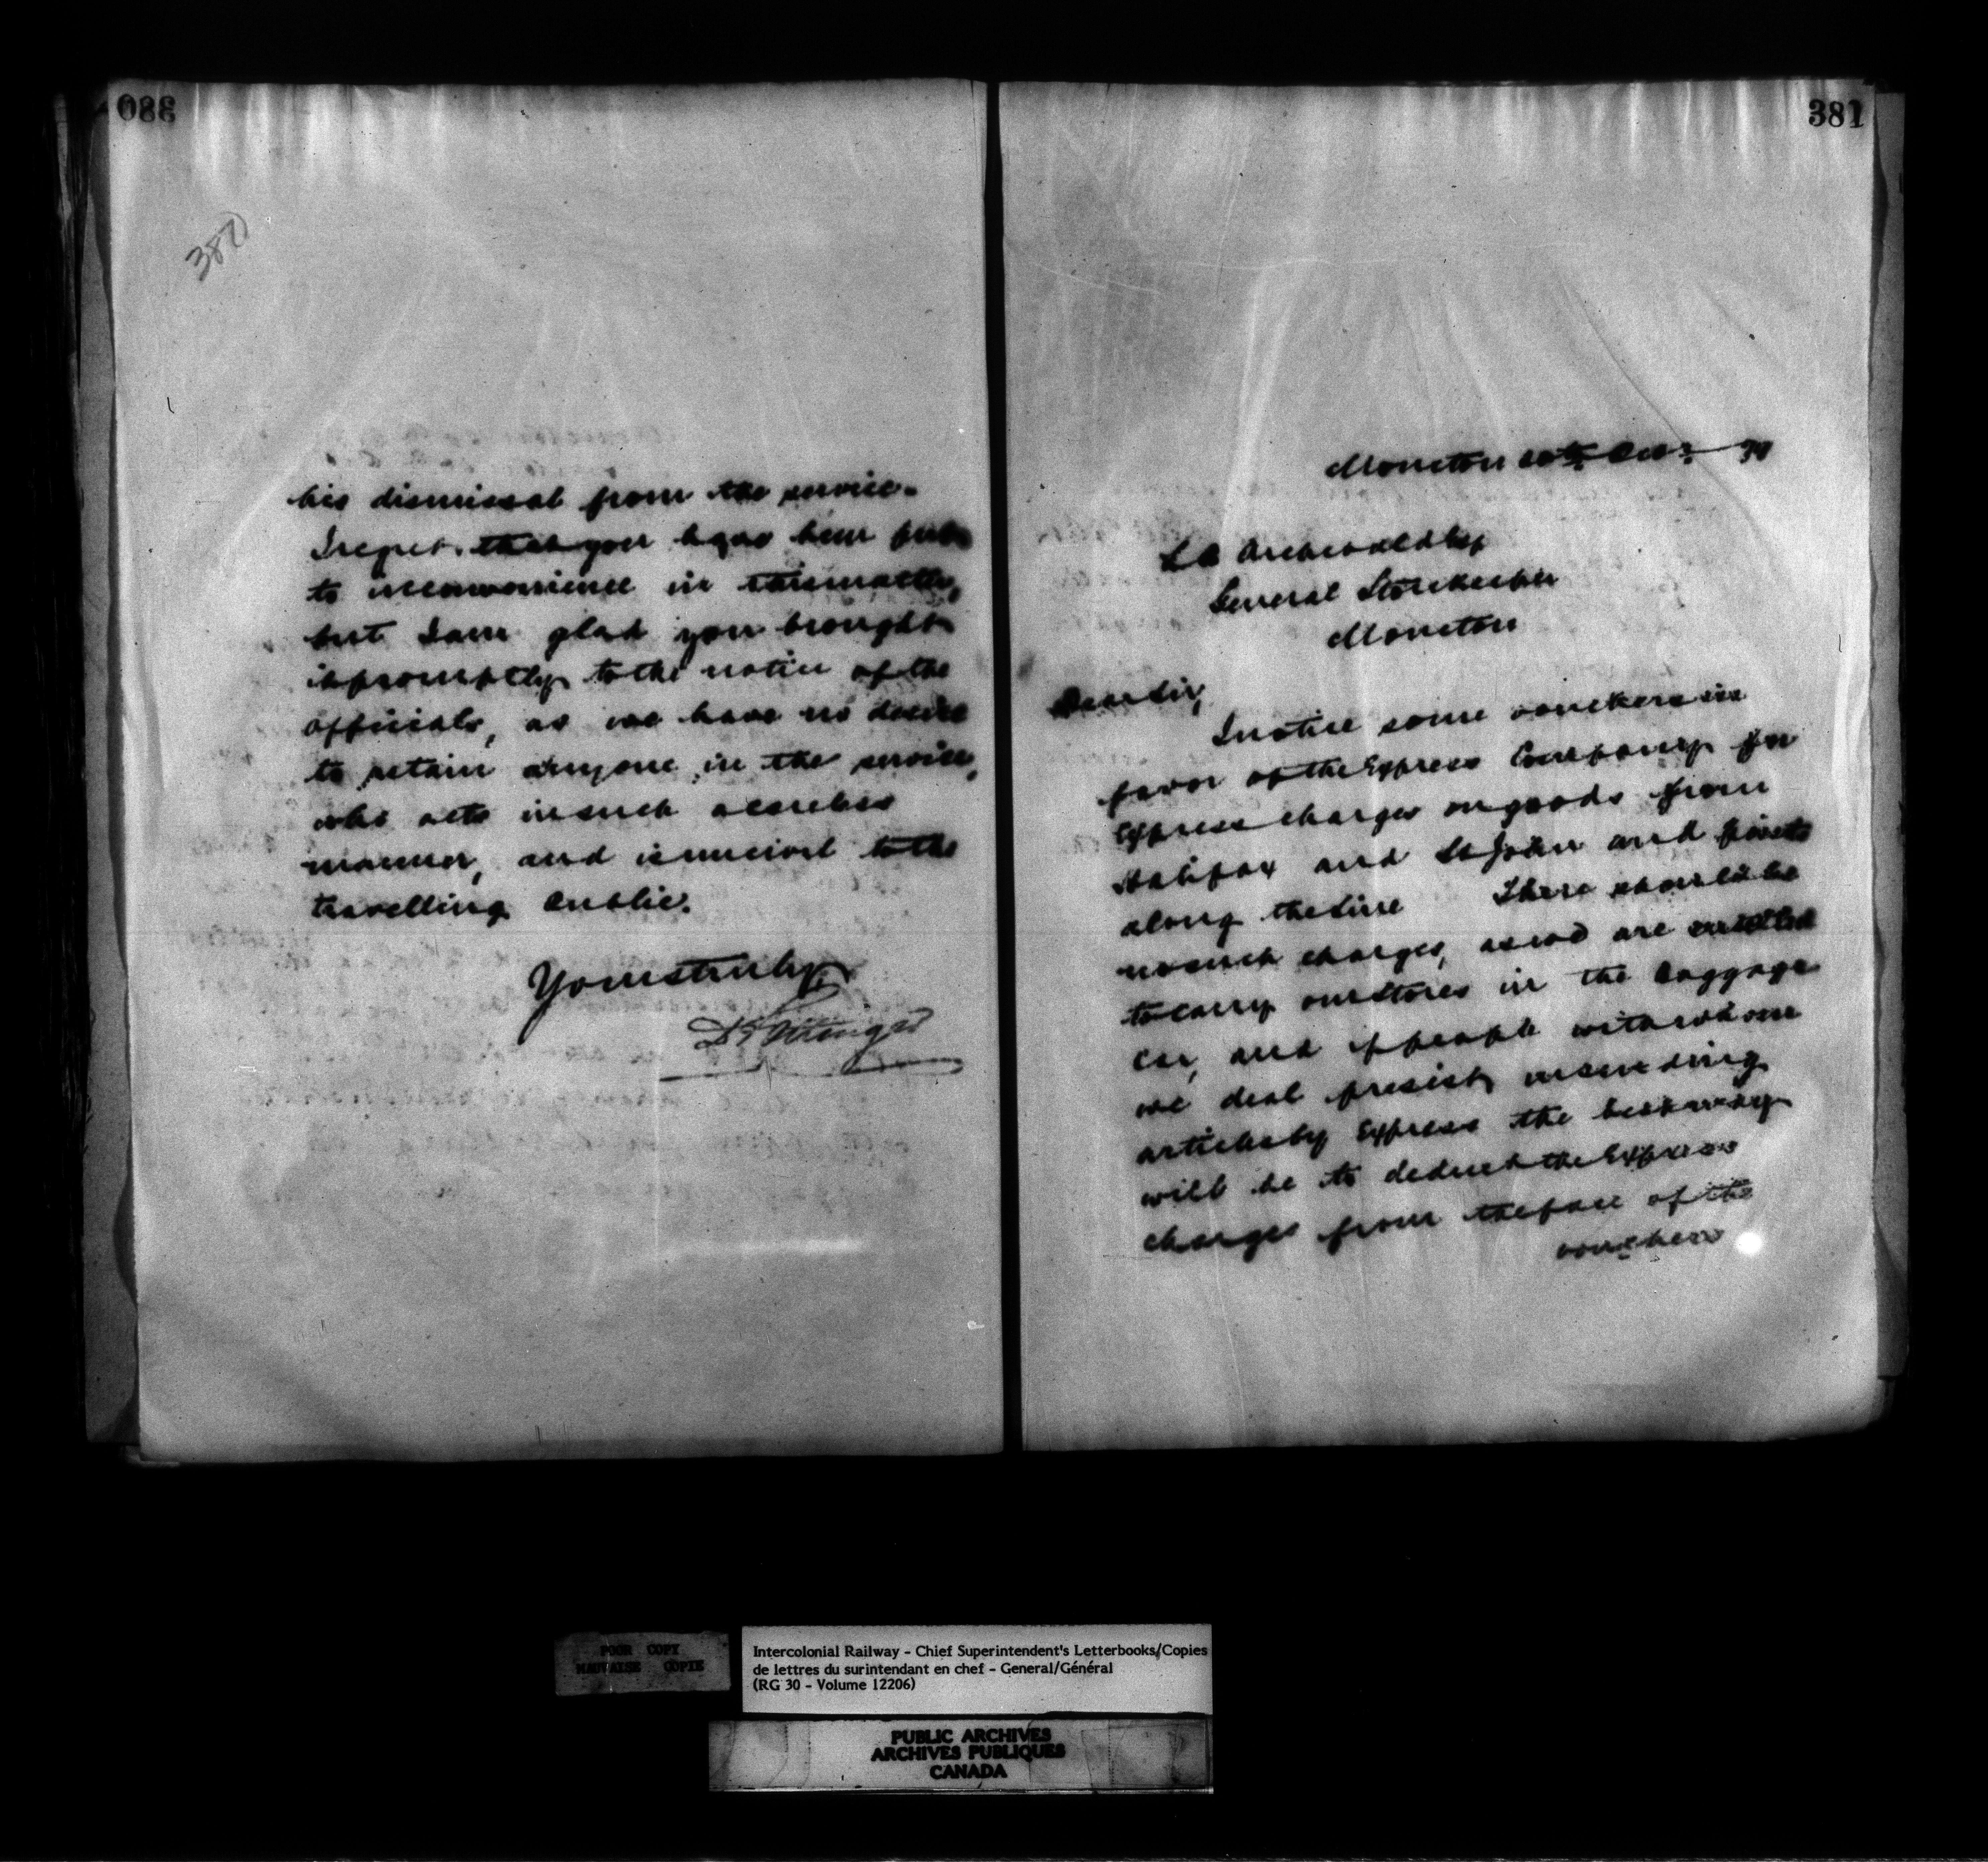 380
380
his dismissal from the service.
I regret that you have been put
to inconvenience in this matter,
but I am glad you brought
it promptly to the notice of the
officials, as we have no desire
to retain anyone in the service,
who acts in such a careless
manner, and is uncivil to the
travelling public.
Yours truly,
381
Moncton 10th
Archibald Esq
General Storekeeper
Moncton
Dear Sir,
I notice some vouchers in
favor of the Express Company for
Express charges on goods from
Halifax and St John and points
along the line There should be
no such charges, as we are entitled
to carry our stores in the baggage
car, and if people with whom
we deal presist in sending
articles by Express the best way
will be to deduct the Express
charges from the face of the
vouchers
POOR COPY
MAUVAISE COPIE
Intercolonial Railway - Chief Superintendent's Letterbooks/Copies
de lettres du surintendant en chef - General/Général
(RG 30 - Volume 12206)
PUBLIC ARCHIVES
ARCHIVES PUBLIQUES
CANADA